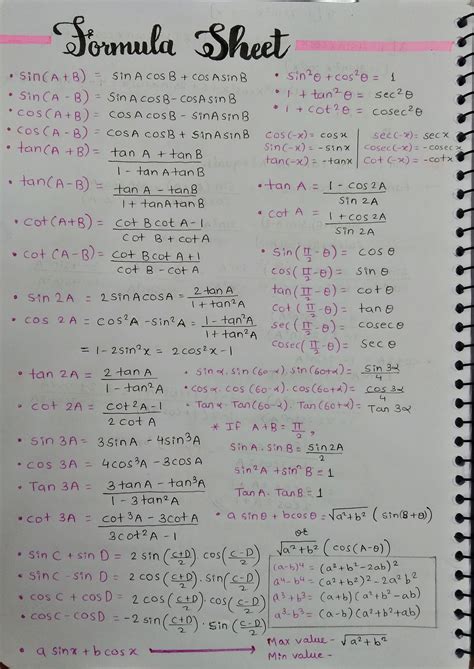 Formula Sheet
• sin(A+B) = sinAcosB + cosAsinB
• sin(A-B) = sinAcosB-cosAsinB
• cos(A+B) = cosAcosB - sinAsinB
• cos(A-B) = cosA cosB + sinAsinB
• tan(A+B) = (tan A + tanB)/(1 - tanAtanB)
• tan(A-B) = (tan A - tanB)/(1 + tanAtanB)
• cot(A+B) = (cot B cot A-1)/(cot B + cot A)
• cot (A-B) = (cot B cot A+1)/(cot B - cot A)
• sin 2A = 2sinAcosA = (2tanA)/(1+tan²A)
• cos 2A = cos²A -sin²A = (1-tan²A)/(1+tan²A)
= 1-2sin²x = 2cos²x-1
• tan 2A = (2 tan A)/(1 - tan²A)
• cot 2A = (cot²A-1)/(2 cot A)
• sin 3A = 3sinA - 4sin³A
• cos 3A = 4cos³A -3cosA
• Tan 3A = (3tanA - tan³A)/(1-3tan²A)
• cot 3A = (cot³A -3cotA)/(1-3cot²A)
• sin C + sin D = 2 sin((C+D)/2) cos((C-D)/2)
• sinC - sinD = 2 cos((C+D)/2) sin((C-D)/2)
• cosC + cosD = 2 cos((C+D)/2) cos((C-D)/2)
• cosC-cosD = -2 sin((C+D)/2) sin((C-D)/2)
• a sinx + b cosx →
Max value - √a²+b²
Min value -
• sin²θ + cos²θ = 1
• 1 + tan²θ = sec²θ
• 1 + cot²θ = cosec²θ
cos(-x) = cosx | sec(-x) = sec x
sin(-x) = -sinx | cosec(-x) = -cosec
tan(-x) = -tanx | cot(-x) = -cotx
• tan A = (1 - cos2A)/(sin 2A)
• cot A = (1 + cos 2A)/(sin 2A)
• sin(π/2 - θ) = cosθ
cos(π/2 - θ) = sinθ
tan(π/2 - θ) = cotθ
cot(π/2 - θ) = tanθ
sec(π/2 - θ) = cosecθ
cosec(π/2 - θ) = secθ
• sinα.sin(60-α).sin(60+α) = (sin 3α)/4
• cosα.cos(60-α).cos(60+α) = (cos 3α)/4
• Tanα.Tan(60-α).Tan(60+α) = Tan 3α
* If A+B = π/2,
sinA.sinB = (sin2A)/2
sin²A + sin²B = 1
TanA.TanB = 1
• a sinθ + bcosθ = √a²+b² (sin(B+θ)
or
√a²+b² (cos(A-θ)
(a-b)⁴ = (a²+b²-2ab)²
a⁴-b⁴ = (a²+b²)² - 2a²b²
a³+b³ = (a+b)(a²+b²-ab)
a³-b³ = (a-b)(a²+b²+ab)